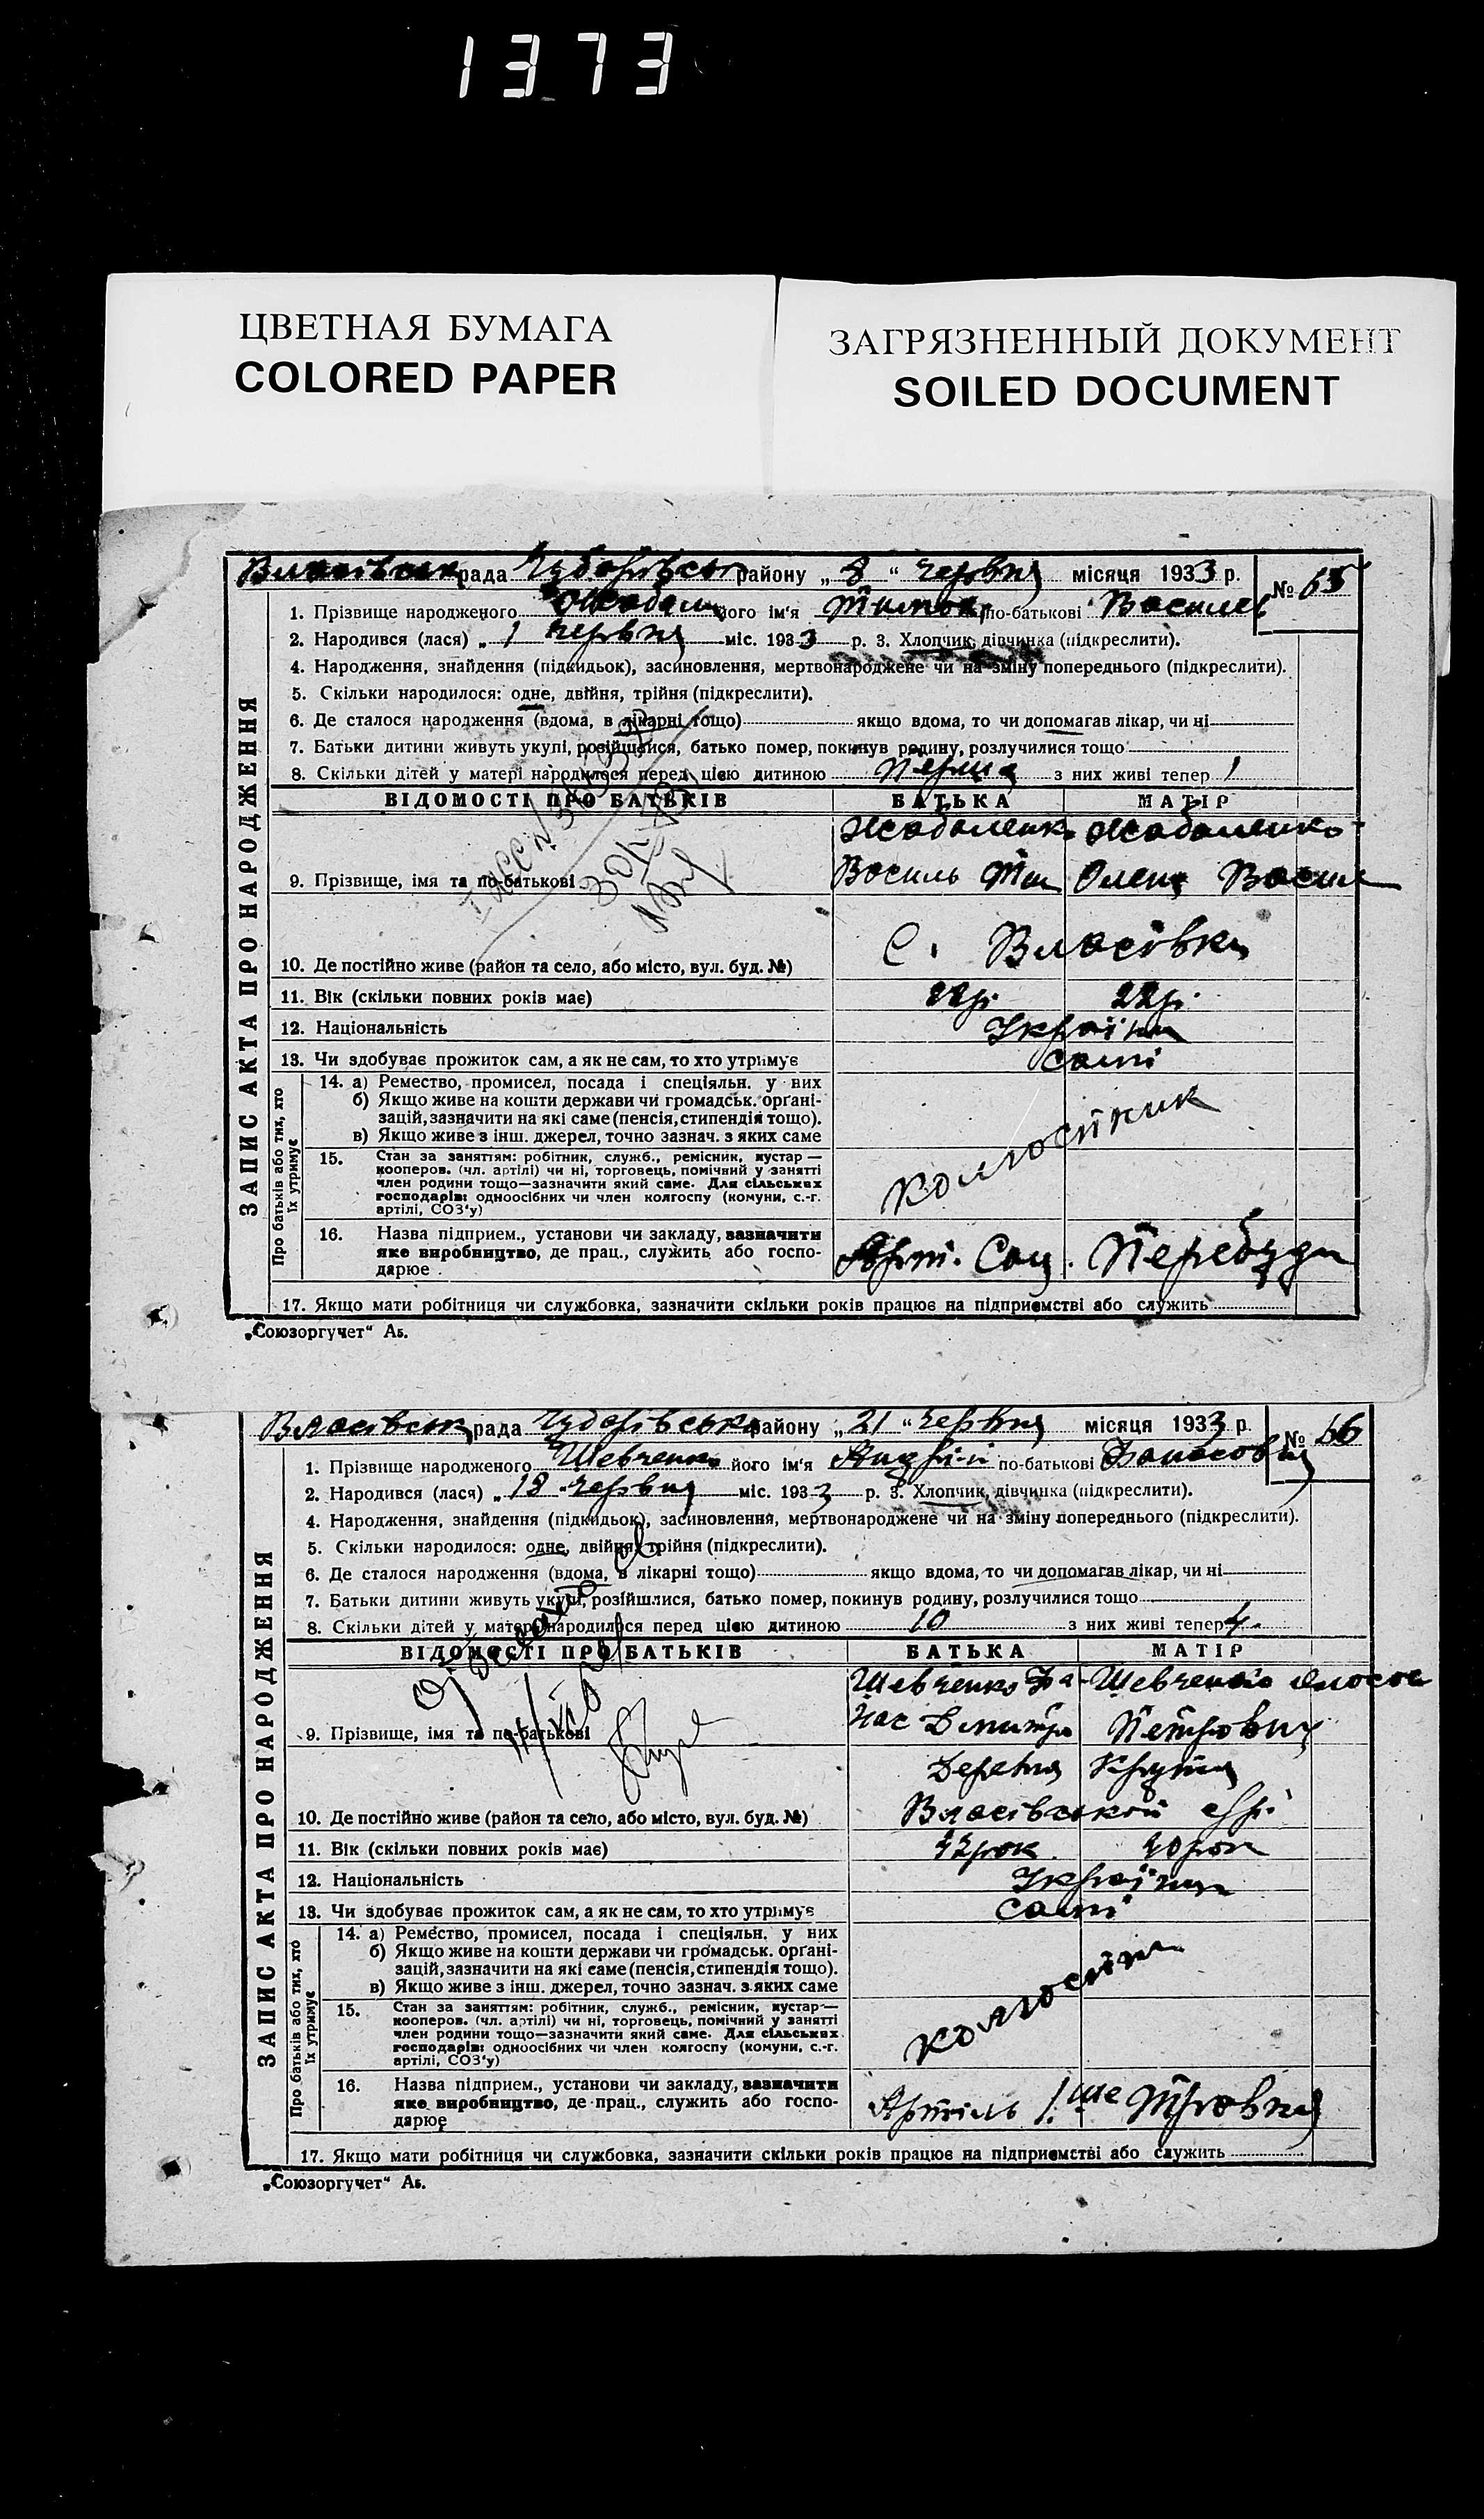 1373
ЦВЕТНАЯ БУМАГА
COLORED PAPER
ЗАГРЯЗНЕННЫЙ ДОКУМЕНТ
SOILED DOCUMENT
ЗАПИС АКТА ПРО НАРОДЖЕННЯ
рада району „ 8 “ червня місяця 1933 р. № 65
1. Прізвище народженого його ім'я по-батькові
2. Народився (лася) „ 1 червня міс. 1933 р. 3. Хлопчик, дівчинка (підкреслити).
4. Народження, знайдення (підкидьок), засиновлення, мертвонароджене чи на зміну попереднього (підкреслити).
5. Скільки народилося: одне, двійня, трійня (підкреслити).
6. Де сталося народження (вдома, в лікарні тощо) якщо вдома, то чи допомагав лікар, чи ні
7. Батьки дитини живуть укупі, розійшлися, батько помер, покинув родину, розлучилися тощо
8. Скільки дітей у матері народилося перед цією дитиною Перша з них живі тепер 1
ВІДОМОСТІ ПРО БАТЬКІВ БАТЬКА МАТІР
9. Прізвище, імя та по-батькові Василь Олена
10. Де постійно живе (район та село, або місто, вул. буд. №) С. Власівка
11. Вік (скільки повних років має) 22 р.
12. Національність
13. Чи здобуває прожиток сам, а як не сам, то хто утримує самі
Про батьків або тих, хто їх утримує
14. а) Ремество, промисел, посада і спеціяльн. у них
б) Якщо живе на кошти держави чи громадськ. органі-
зацій, зазначити на які саме (пенсія, стипендія тощо).
в) Якщо живе з інш. джерел, точно зазнач. з яких саме
15. Стан за заняттям: робітник, служб., ремісник, кустар —
кооперов. (чл. артілі) чи ні, торговець, помічний у занятті
член родини тощо—зазначити який саме. Для сільських
господарів: одноосібних чи член колгоспу (комуни, с.-г.
артілі, СОЗ'у)
колгоспник
16. Назва підприєм., установи чи закладу, зазначити
яке виробництво, де прац., служить або госпо-
дарює Арт. Соц. Перебудн
17. Якщо мати робітниця чи службовка, зазначити скільки років працює на підприємстві або служить
„Союзоргучет“ Аб.
ЗАПИС АКТА ПРО НАРОДЖЕННЯ
Власівськ рада району „ 21 “ червня місяця 1933 р. № 66
1. Прізвище народженого Шевченко його ім'я Андрій по-батькові
2. Народився (лася) „ 18 червня міс. 1933 р. 3. Хлопчик, дівчинка (підкреслити).
4. Народження, знайдення (підкидьок), засиновлення, мертвонароджене чи на зміну попереднього (підкреслити).
5. Скільки народилося: одне, двійня, трійня (підкреслити).
6. Де сталося народження (вдома, в лікарні тощо) якщо вдома, то чи допомагав лікар, чи ні
7. Батьки дитини живуть укупі, розійшлися, батько помер, покинув родину, розлучилися тощо
8. Скільки дітей у матері народилося перед цією дитиною 10 з них живі тепер 4
ВІДОМОСТІ ПРО БАТЬКІВ БАТЬКА МАТІР
Шевченко Па- Шевченко
9. Прізвище, імя та по-батькові нас Дмитро Петровна
10. Де постійно живе (район та село, або місто, вул. буд. №) Власівськой
11. Вік (скільки повних років має) 42 рок 40 рок
12. Національність
13. Чи здобуває прожиток сам, а як не сам, то хто утримує самі
Про батьків або тих, хто їх утримує
14. а) Ремество, промисел, посада і спеціяльн. у них
б) Якщо живе на кошти держави чи громадськ. органі-
зацій, зазначити на які саме (пенсія, стипендія тощо).
в) Якщо живе з інш. джерел, точно зазнач. з яких саме
15. Стан за заняттям: робітник, служб., ремісник, кустар—
кооперов. (чл. артілі) чи ні, торговець, помічний у занятті
член родини тощо—зазначити який саме. Для сільських
господарів: одноосібних чи член колгоспу (комуни, с.-г.
артілі, СОЗ'у)
16. Назва підприєм., установи чи закладу, зазначити
яке виробництво, де прац., служить або госпо-
дарює Артіль 1ше Травня
17. Якщо мати робітниця чи службовка, зазначити скільки років працює на підприємстві або служить
„Союзоргучет“ Аб.